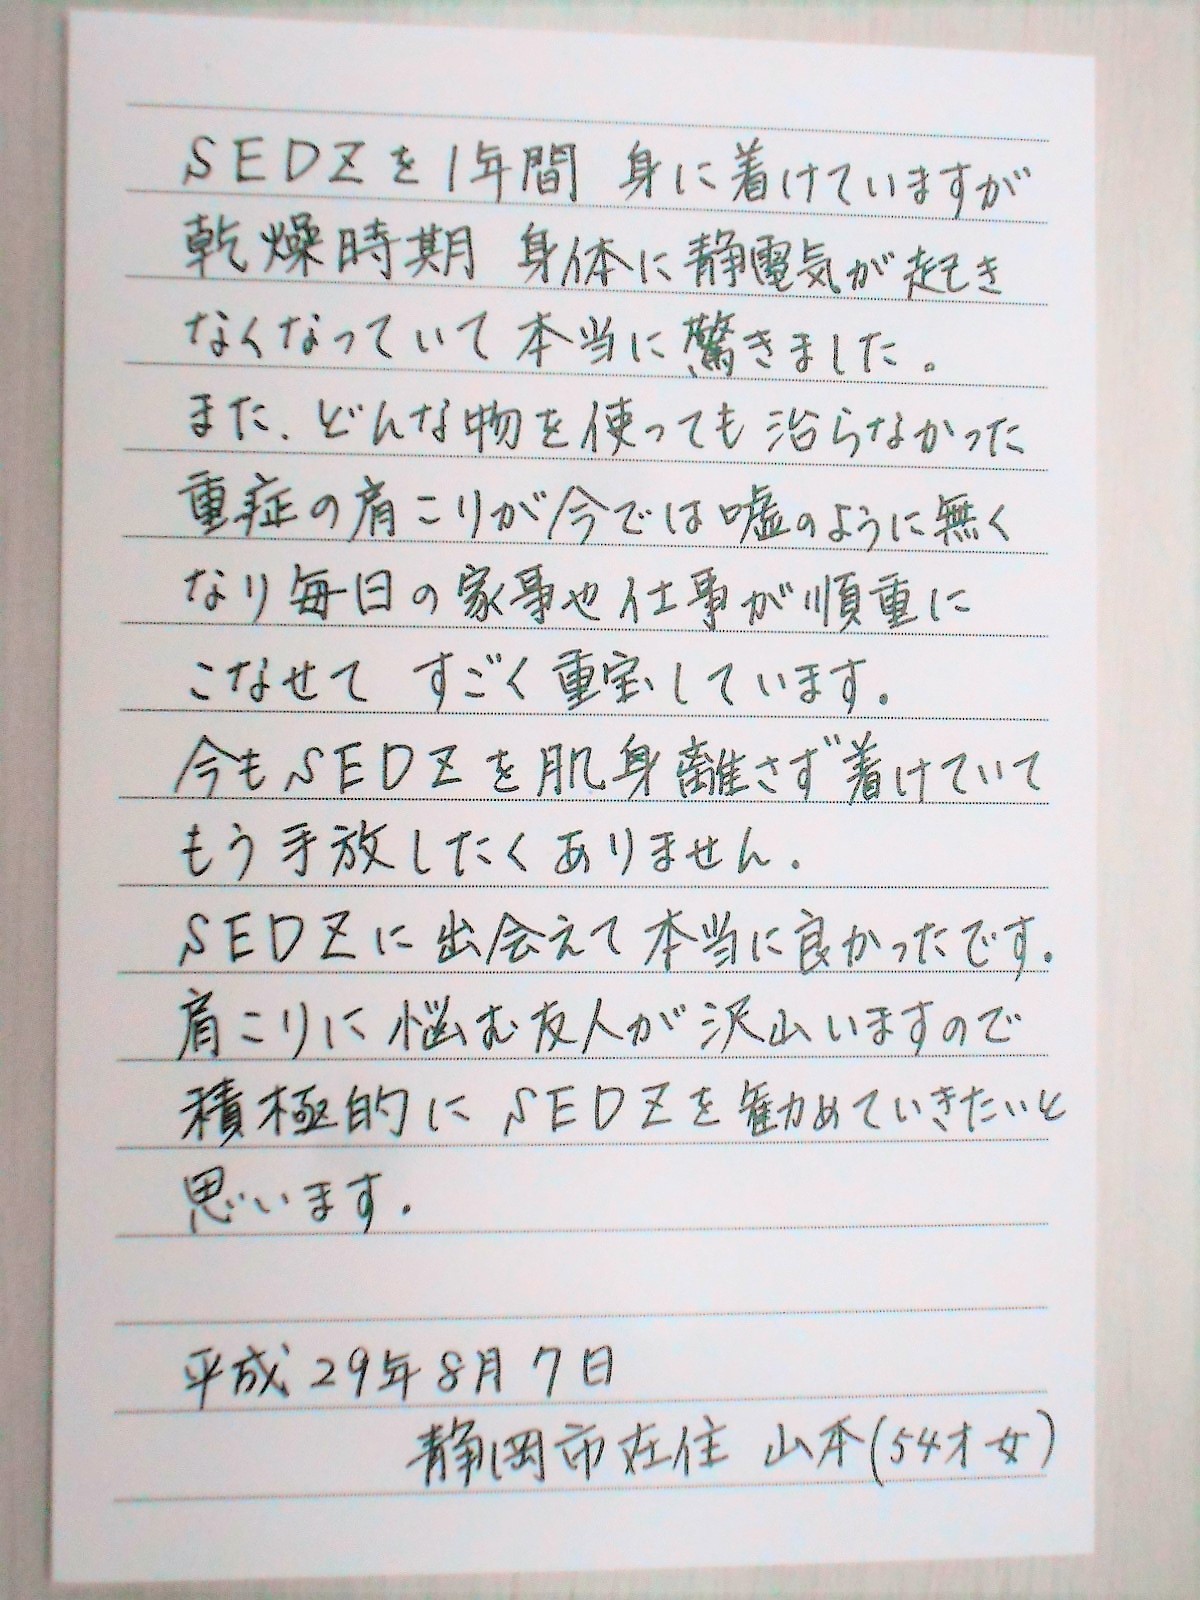 SEDZを1年間 身に着けていますが
乾燥時期 身体に静電気が起き
なくなっていて本当に驚きました。
また、どんな物を使っても治らなかった
重症の肩こりが今では嘘のように無く
なり毎日の家事や仕事が順重に
こなせて すごく重宝しています。
今もSEDZを肌身離さず着けていて
もう手放したくありません。
SEDZに出会えて本当に良かったです。
肩こりに悩む友人が沢山いますので
積極的にSEDZを勧めていきたいと
思います。
平成29年8月7日
静岡市在住 山本(54才女)